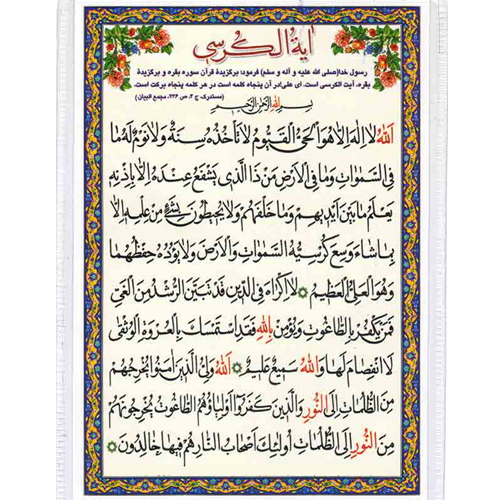 آیة الکرسی
رسول خدا(صلی الله علیه و آله و سلم) فرمود: برگزیدهٔ قرآن سوره بقره و برگزیدهٔ
بقره، آیت الکرسی است. ای علی!در آن پنجاه کلمه است در هر کلمه پنجاه برکت است.
(مستدرک، ج ۴، ص ۳۳۶، مجمع البیان)
بِسْمِ اللهِ الرَّحْمٰنِ الرَّحیمِ
اَللهُ لا اِلٰهَ اِلّا هُوَ الْحَیُّ الْقَیُّومُ لا تَأْخُذُهُ سِنَةٌ وَلا نَوْمٌ لَهُ ما
فِی السَّمٰواتِ وَما فِی الْاَرْضِ مَنْ ذَا الَّذی یَشْفَعُ عِنْدَهُ اِلّا بِاِذْنِهِ
یَعْلَمُ ما بَیْنَ اَیْدیهِمْ وَما خَلْفَهُمْ وَلا یُحیطُونَ بِشَیْءٍ مِنْ عِلْمِهِ اِلّا
بِما شاءَ وَسِعَ کُرْسِیُّهُ السَّمٰواتِ وَالْاَرْضَ وَلا یَؤُدُهُ حِفْظُهُما
وَهُوَ الْعَلِیُّ الْعَظیمُ لا اِکْراهَ فِی الدّینِ قَدْ تَبَیَّنَ الرُّشْدُ مِنَ الْغَیِّ
فَمَنْ یَکْفُرْ بِالطّاغُوتِ وَیُؤْمِنْ بِاللهِ فَقَدِ اسْتَمْسَکَ بِالْعُرْوَةِ الْوُثْقیٰ
لَا انْفِصامَ لَها وَاللهُ سَمیعٌ عَلیمٌ اَللهُ وَلِیُّ الَّذینَ اٰمَنُوا یُخْرِجُهُمْ
مِنَ الظُّلُماتِ اِلَی النُّورِ وَالَّذینَ کَفَرُوا اَوْلِیاؤُهُمُ الطّاغُوتُ یُخْرِجُونَهُمْ
مِنَ النُّورِ اِلَی الظُّلُماتِ اُولٰئِکَ اَصْحابُ النّارِ هُمْ فیها خالِدُونَ